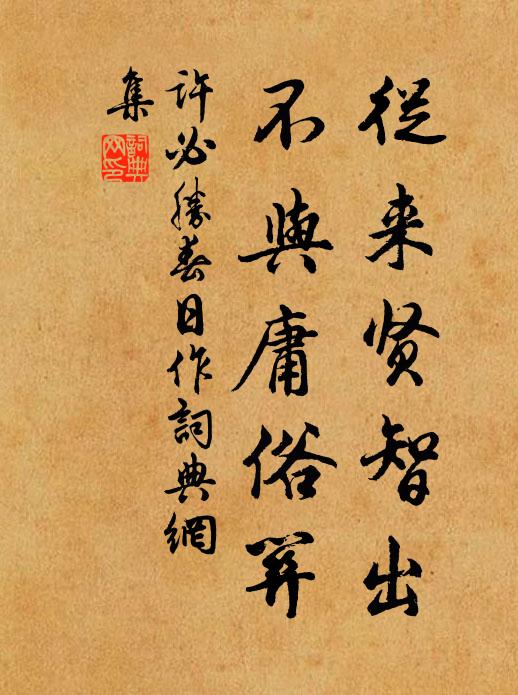 從来贤智出
不與庸俗羿
許必勝春日作詞典網
集
詞典
网印